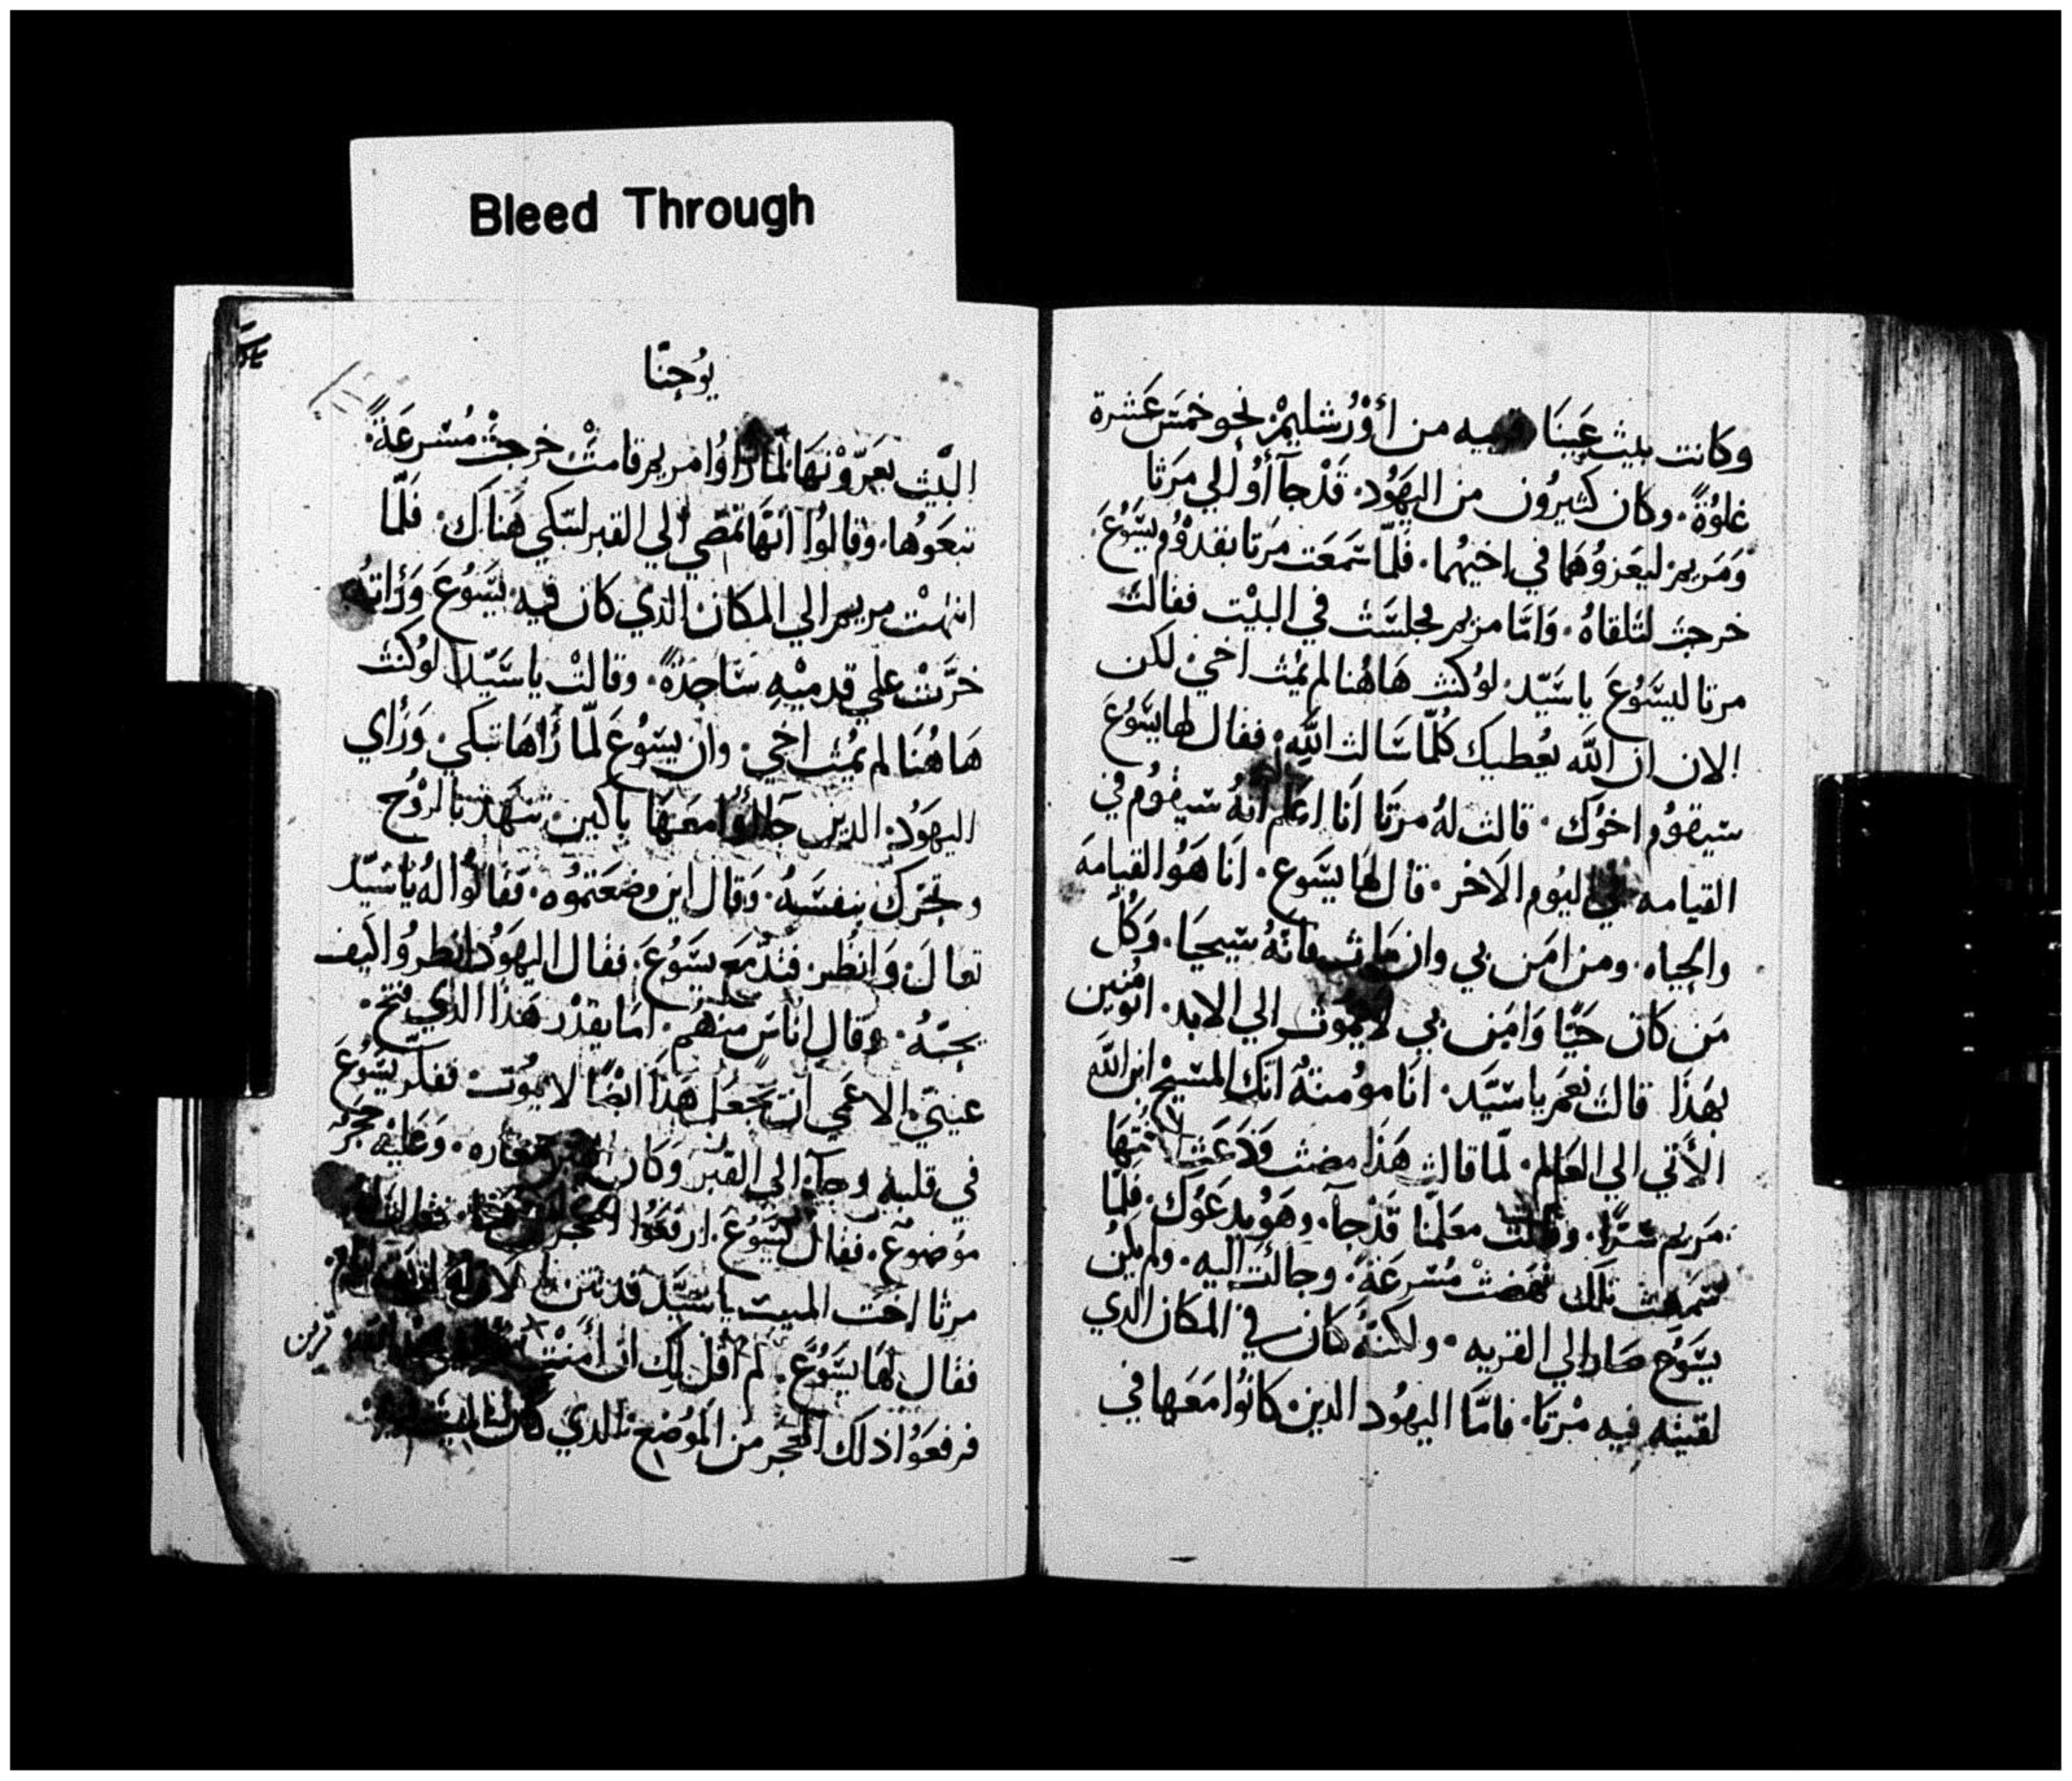 Bleed Through
وكانت بيث عَينَا قريبه من أوْرُشليمْ نحو خمسَ عَشرة
غلوُةً. وكان كثيرُون من اليهَوُد. قَدْجآأوُا لي مَرَثا
ومَريم ليعَزوُهَما في اخيهُما. فلمّا سَمعَت مرَتا بقدوُم يسَوُعَ
خرجت لتلقاهُ. وَامّا مريم فجلسَت في البيْت فقالت
مرتا ليسَوُعَ ياسَيّد. لوُكنت هَاهُنا لم يمُث اخي. لكن
الان ان الله يعُطيك كلُمّا سَالت الله. فقال لها يسَوُعَ
سيقوُم اخوُك. قالت لهُ مرتَا اَنا اعلم انهُ سَيقوُم في
القيامه في اليوُم الآخر. قال لهَا يسَوع. انَا هَوُ القيامه
والحياه. ومن امَن بي وان ماث فانّهُ سَيحيَا. وَكلُ
مَن كان حَيًا وَامَن بي لا يموُث الي الابد. اتومُنين
بهَذا قالت نعَم ياسَيّد. انَا موُمنةُ انك المسَيح ابن الله
الأتي الي العَالم. لمّا قالت هَذا مضت وَدعَت اختهَا
مَريم سَرًا. وقالت معَلمّنا قَدْجآ. وهَوُ يدعَوُك. فلمّا
سَمعت تلك نهَضتْ مُسَرعَةً. وجآئت اليه. ولم يكنُ
يسَوُع صَار الي القريه. ولكنهُّ كان في المكان الدي
لقيته فيه مرْتَا. فامّا اليهوُد الدين كانوُا معَهَا في
يوُحنّا
البيْت يعَزّوُنهَا لمّا رَاوُا مريم قامتْ خرجتْ مُسَرعَةً.
تبعَوُها. وَقالوُا انهّا تمضي الي القبر لتبكي هَناك. فَلمّا
انتهتْ مريم الي المكان الدي كان فيه يسَوُعَ وَرَأتهُ
خرَّتْ علي قدميْه سَاجدةً. وقالتْ ياسَيّد لوُكنت
هَاهُنَا لم يمُت اخي. وان يسَوُعَ لمّا رَأهَا تبَكي. وَرَأي
اليهَوُد. الدين جآؤُا معَهَا باكين. تنهَد بالروُح
وتحَرك بنفسَهُ. وَقال اين وضعَتموُه. فقالوُا لهُ ياسَيّد
تعال. وَانظر. فتدمَع يسَوُعَ. فقال اليهَوُد انظروُا كيف
يحبّهُ. وقال اناسَ منهُم. امَا يقدْر هَذا الدي فتح.
عينيّ الاعَمي ان يجعَل هَذَا ايضًا لا يموُت. ففكر يسَوُعَ
في قلبهِ وجآ. الي القبرْ وكان مغاره. وَعَليْه حَجرُ
موُضوُعَ. فقال يسَوُعَ. ارفعَوُا الحجر
مرثا اخت الميت ياسَيّد قد نتن
فقال لهَا يسَوُعَ. لم اقل لك ان أمنتْ
ترين
فرفعَوُا دلك الحَجر من الموُضعَ الدي كان